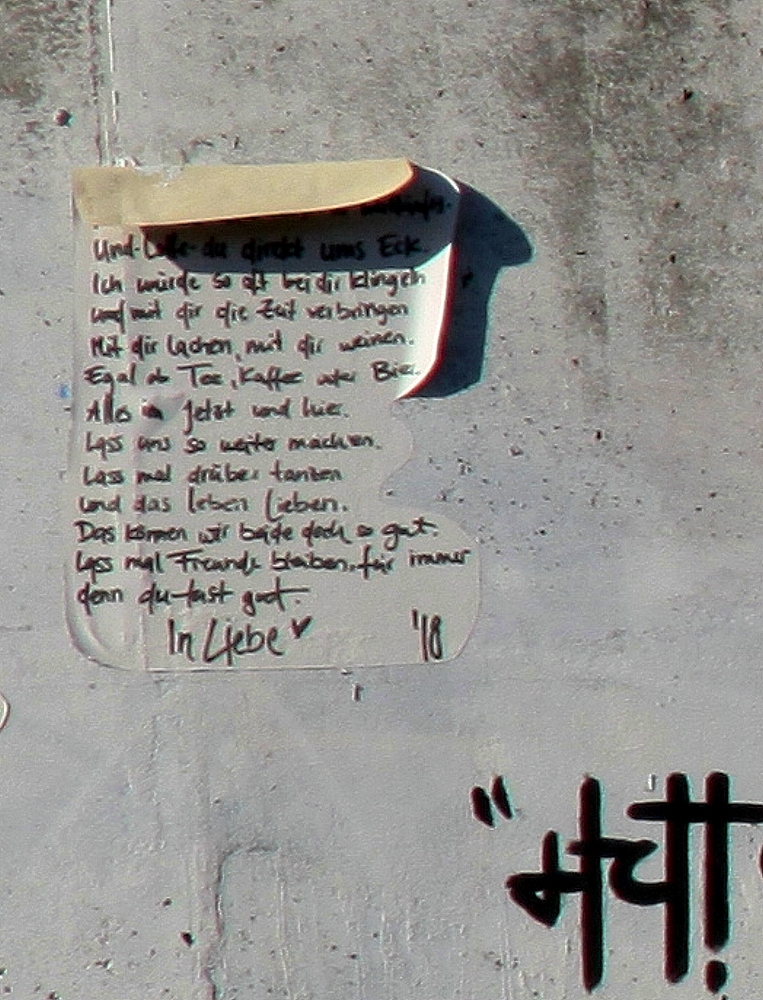 Und du direkt ums Eck.
Ich würde so oft bei dir klingeln
und mit dir die Zeit verbringen
Mit dir lachen, mit dir weinen.
Egal ob Tee, Kaffee oder Bier.
Alles im Jetzt und hier.
Lass uns so weiter machen.
Lass mal drüber tanzen
und das leben lieben.
Das können wir beide doch so gut.
Lass mal Freunde bleiben, für immer
denn du tust gut.
In Liebe ♥ '18